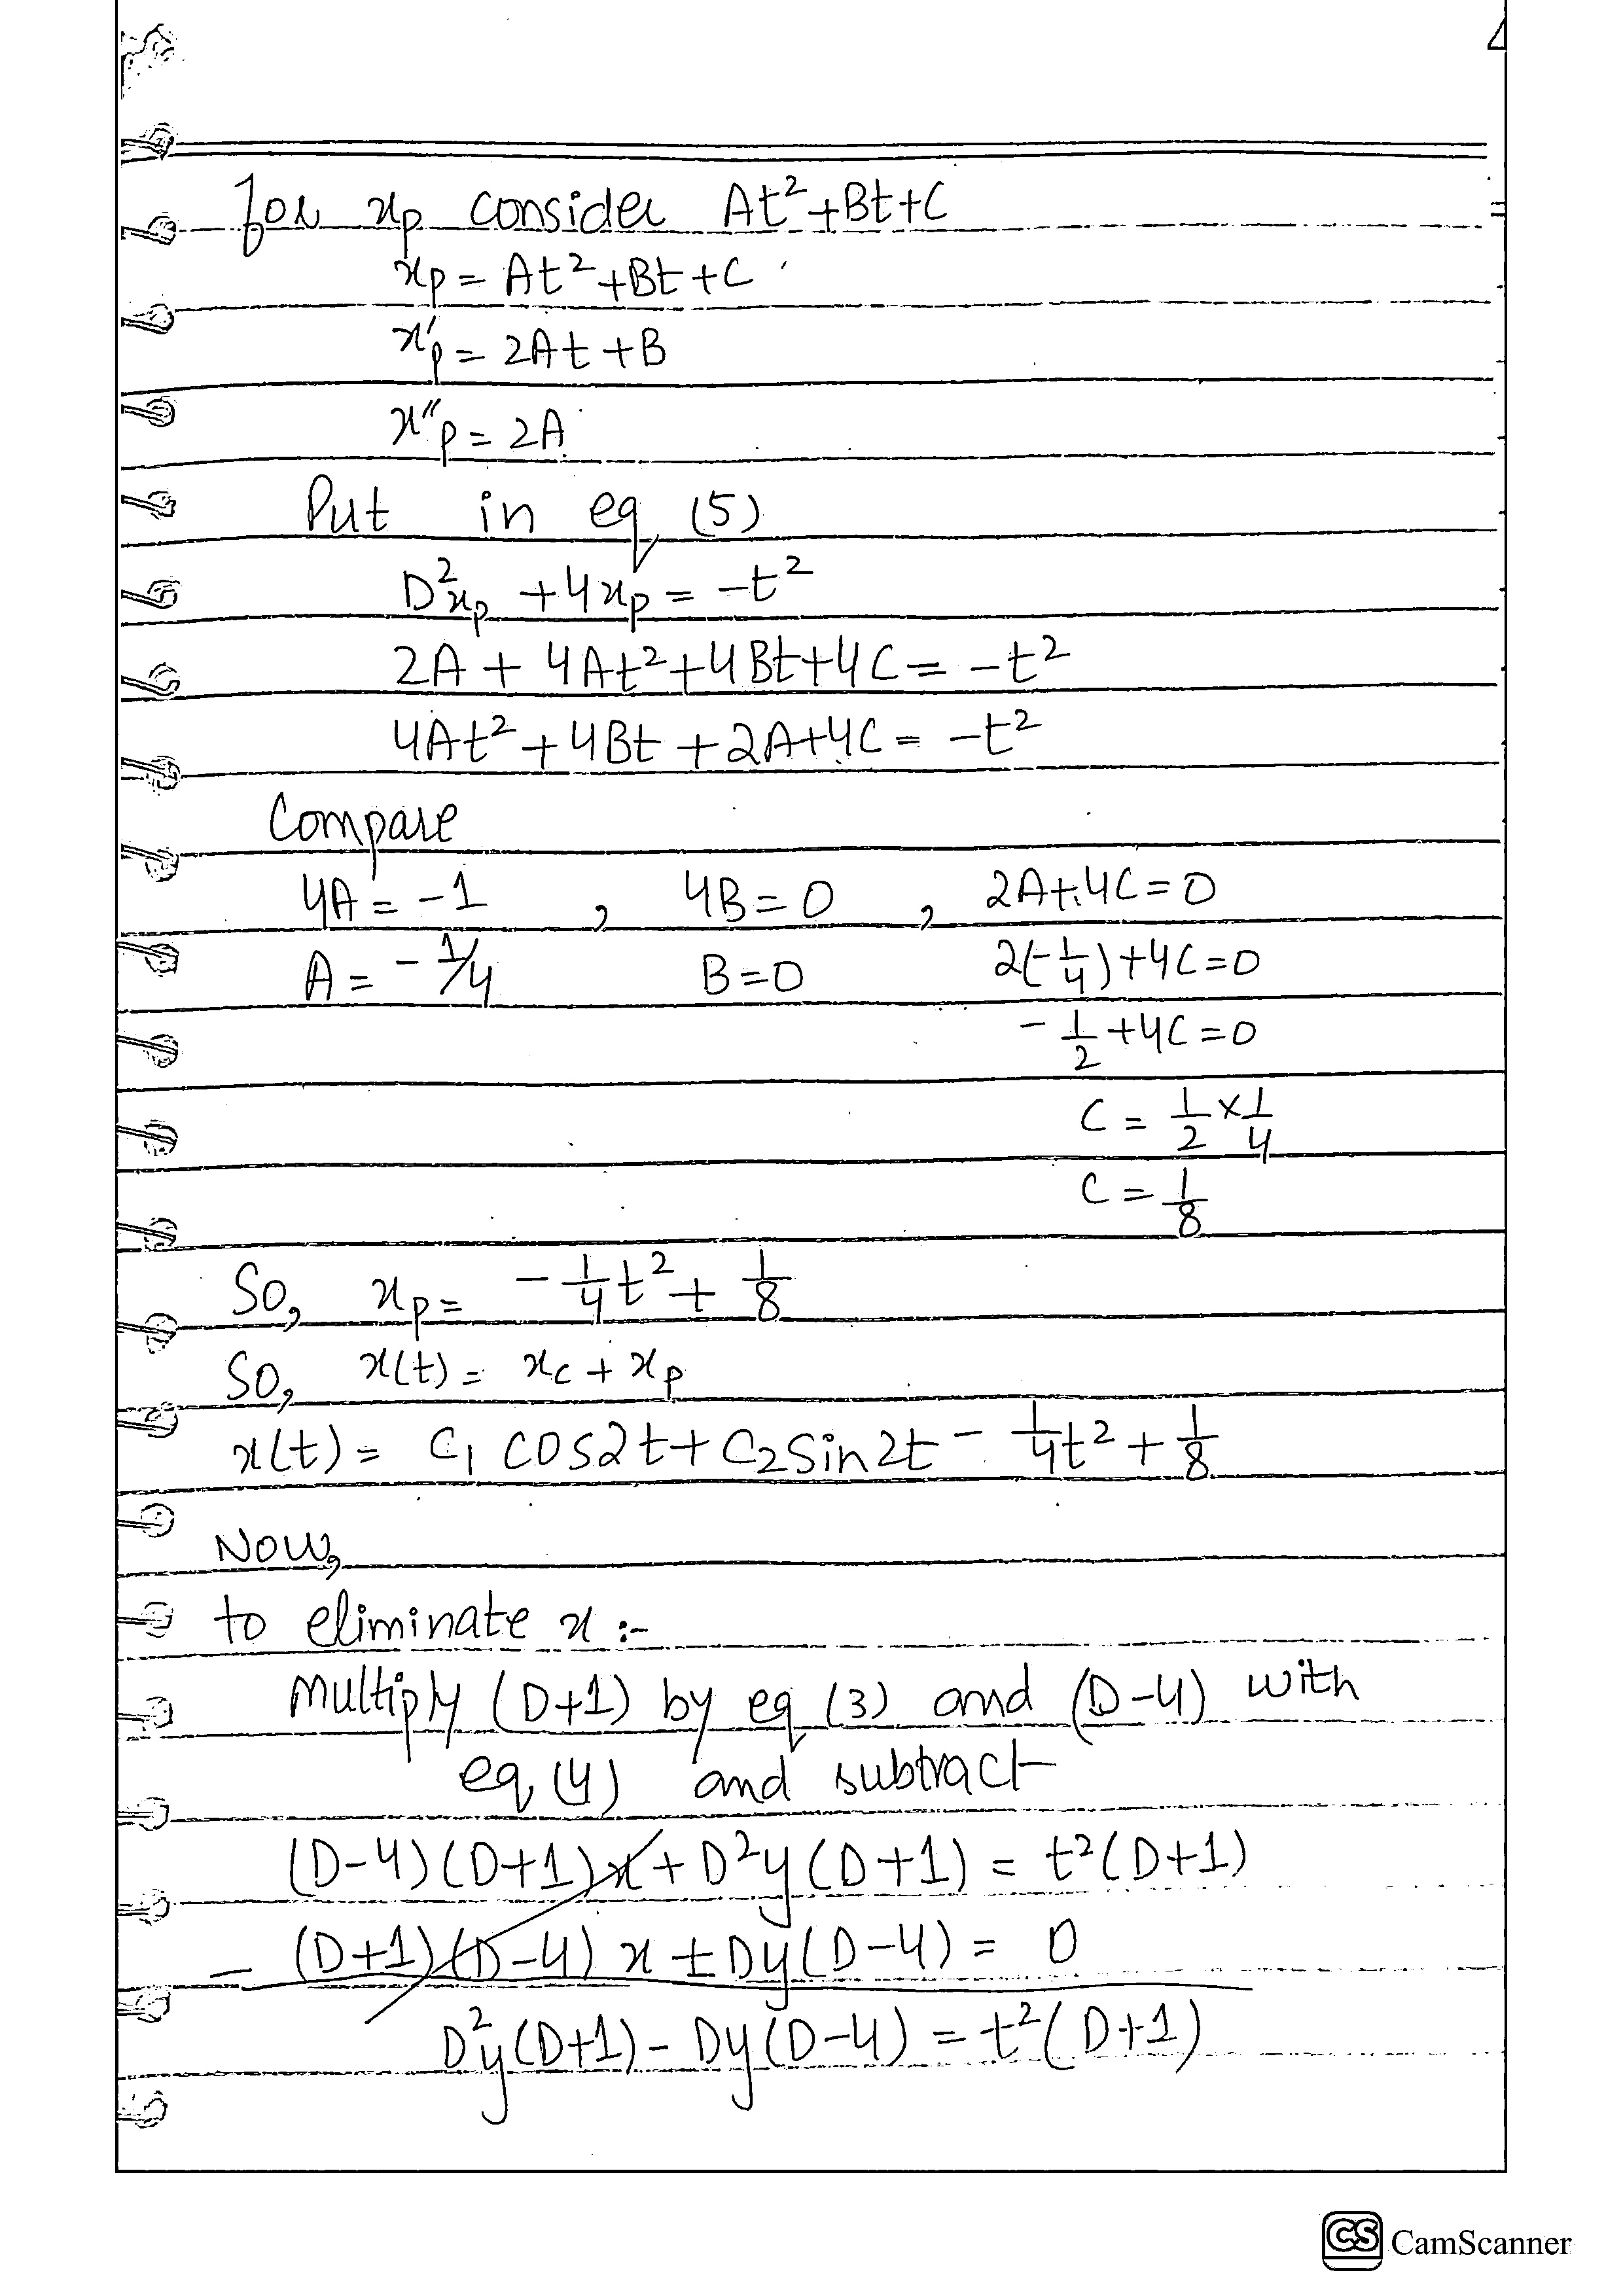 for xp consider At²+Bt+C
xp = At²+Bt+C
x'p = 2At+B
x''p = 2A
Put in eq (5)
D²xp + 4xp = -t²
2A + 4At²+4Bt+4C = -t²
4At²+4Bt+2A+4C = -t²
Compare
4A = -1 , 4B=0 , 2A+4C=0
A = -1/4 B=0 2(-1/4)+4C=0
-1/2+4C=0
C = 1/2 × 1/4
C = 1/8
So, xp = -1/4t² + 1/8
So, x(t) = xc + xp
x(t) = C₁ cos2t + C₂ Sin2t - 1/4t² + 1/8
Now,
to eliminate x :-
Multiply (D+1) by eq (3) and (D-4) with
eq (4) and subtract
(D-4)(D+1)x + D²y(D+1) = t²(D+1)
- (D+1)(D-4)x ± Dy(D-4) = 0
D²y(D+1) - Dy(D-4) = t²(D+1)
CS CamScanner